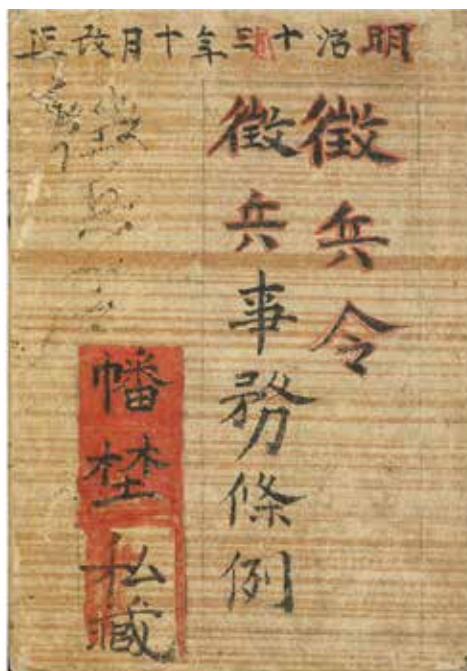 明治十三年十月改正
徵兵令
徵兵事務條例
幡埜私藏